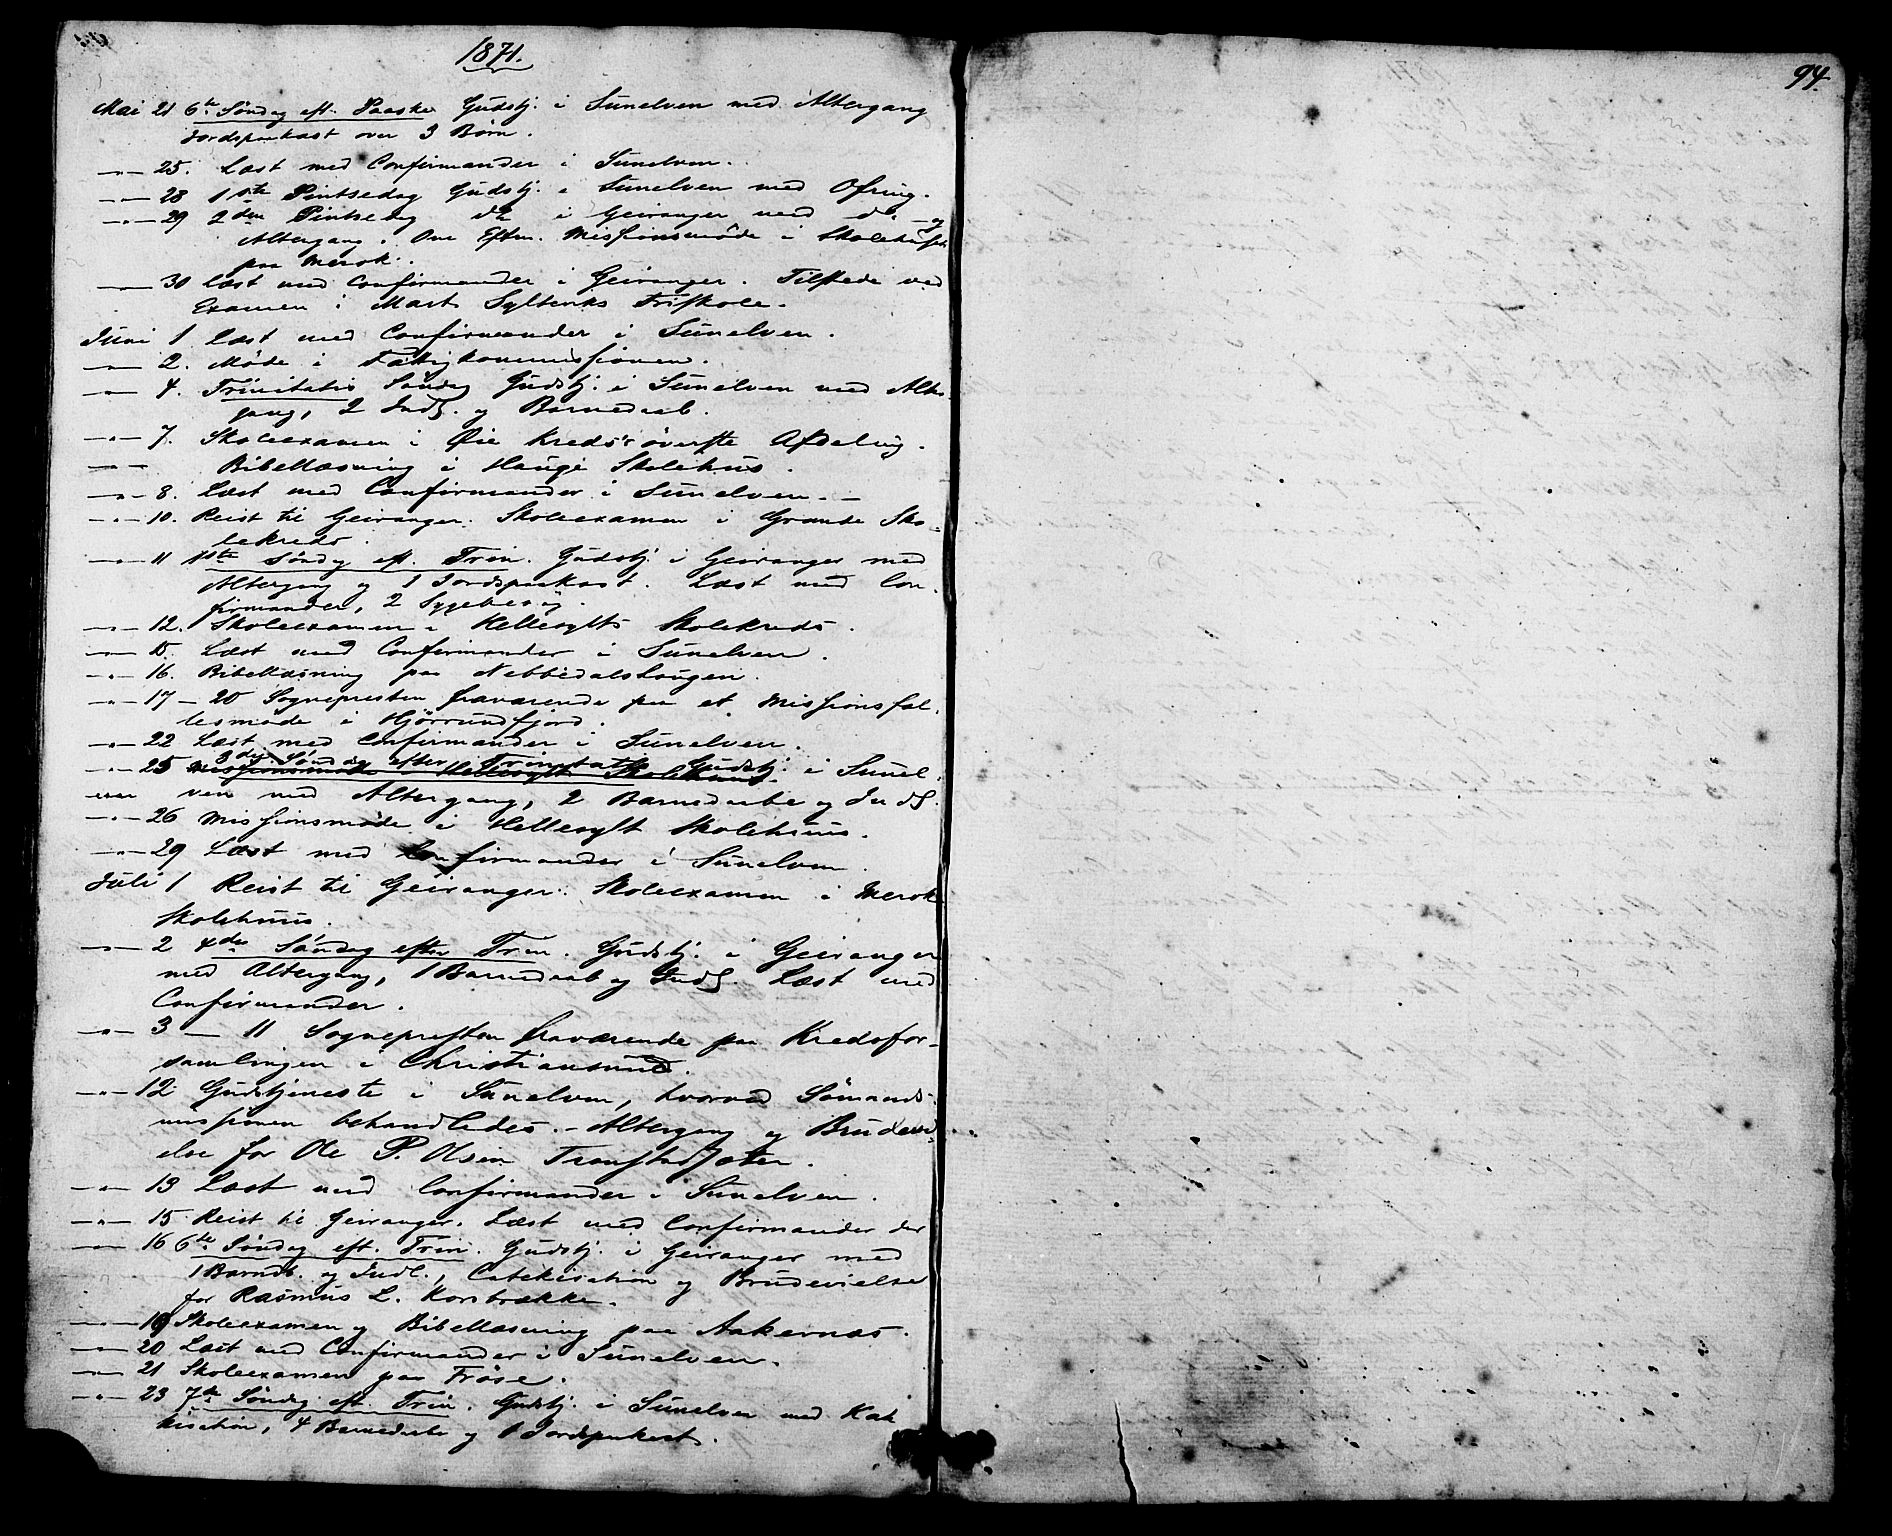 1871.
94.
Mai 21 6te Søndag eft. Paaske Gudstj. i Sunelven med Altergang
Jordspaakast over 3 Børn.
—"— 25. Læst med Confirmander i Sunelven.
—"— 28 1ste Pintsedag Gudstj. i Sunelven med Ofring.
—"— 29 2den Pintsedag do i Geiranger med do - og
Altergang. Om Efterm. Missionsmøde i Skolehuset
paa Merok.
—"— 30 læst med Confirmander i Geiranger. Tilstede ved
Examen i Mart. Sylteviks Friskole.
Juni 1 Læst med Confirmander i Sunelven.
—"— 2. Møde i Fattigkommissionen.
—"— 4. Trinitatis Søndag Gudstj. i Sunelven med Alter-
gang, 2 Indl. og Barnedaab.
—"— 7. Skoleexamen i Øie Kreds's øverste Afdeling.
—"— Bibellæsning i Hauge Skolehus.
—"— 8. Læst med Confirmander i Sunelven. —
—"— 10. Reist til Geiranger. Skoleexamen i Grande Sko-
lekreds.
—"— 11 1ste Søndag eft. Trin. Gudstj. i Geiranger med
Altergang og 1 Jordspaakast. Læst med Con-
firmander, 2 Sygebesøg.
—"— 12. Skoleexamen i Hellesylts Skolekreds.
—"— 15. Læst med Confirmander i Sunelven.
—"— 16. Bibellæsning paa Nebbedalshougen.
—"— 17 - 20 Sognepresten fraværende paa et Missionsfæl-
lesmøde i Hjörrundfjord.
—"— 22 Læst med Confirmander i Sunelven.
—"— 25 3die Søndag efter Trinitatis Gudstj. i Sunel-
Missionsmøde i Hellesylt Skolehuus.
ven med Altergang, 2 Barnedaabe og Indl.
—"— 26 Missionsmøde i Hellesylt Skolehuus.
—"— 29 Læst med Confirmander i Sunelven.
Juli 1 Reist til Geiranger. Skoleexamen i Merok
Skolehuus.
—"— 2 4de Søndag efter Trin. Gudstj. i Geiranger
med Altergang, 1 Barnedaab og Indl. Læst med
Confirmander.
—"— 3 — 11 Sognepresten fraværende paa Kredsfor-
samlingen i Christiansund.
—"— 12 Gudstjeneste i Sunelven, hvorved Sømands-
missionen behandledes. - Altergang og Brudevi-
else for Ole P. Olsen Tronstadsæter.
—"— 13 Læst med Confirmander i Sunelven.
—"— 15 Reist til Geiranger. Læst med Confirmander der
—"— 16 6te Søndag eft. Trin. Gudstj. i Geiranger med
1 Barnd. og Indl., Catekisation og Brudevielse
for Rasmus L. Korsbrække.
—"— 19 Skoleexamen og Bibellæsning paa Aakernæs.
—"— 20 Læst med Confirmander i Sunelven.
—"— 21 Skoleexamen paa Frøse.
—"— 23 7de Søndag eft. Trin. Gudstj. i Sunelven med Kate
kisation, 4 Barnedaabe og 1 Jordspaakast.